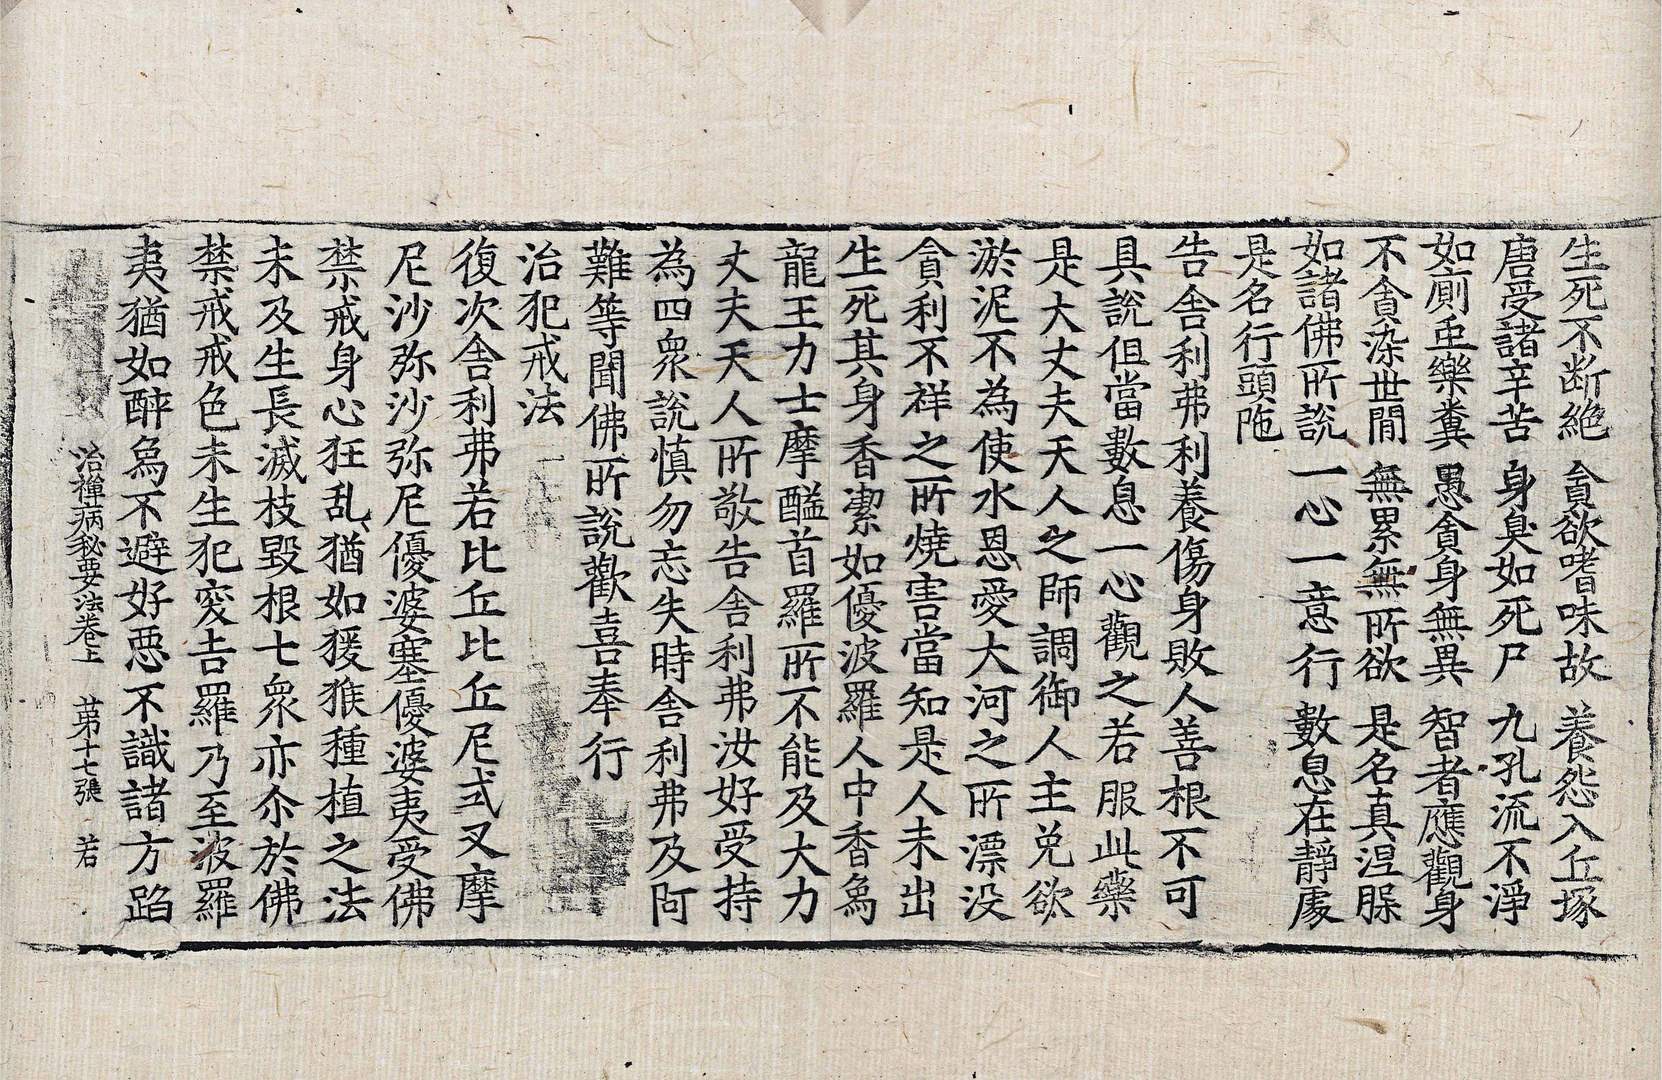 生死不断絶 貪欲嗜味故 養怨入丘塚
唐受諸辛苦 身臭如死尸 九孔流不淨
如廁虫樂糞 愚貪身無異 智者應觀身
不貪染世間 無累無所欲 是名真涅脵
如諸佛所說 一心一意行 數息在靜處
是名行頭陁
告舍利弗利養傷身敗人善根不可
具說但當數息一心觀之若服此藥
是大丈夫天人之師調御人主免欲
淤泥不為使水恩愛大河之所漂没
貪利不祥之所燒害當知是人未出
生死其身香潔如優波羅人中香象
龍王力士摩醯首羅所不能及大力
丈夫天人所敬告舍利弗汝好受持
為四衆說慎勿忘失時舍利弗及阿
難等聞佛所說歡喜奉行
治犯戒法
復次舍利弗若比丘比丘尼式叉摩
尼沙弥沙弥尼優婆塞優婆夷受佛
禁戒身心狂乱猶如猨猴種植之法
未及生長滅枝毀根七衆亦尒於佛
禁戒戒色未生犯突吉羅乃至波羅
夷猶如醉象不避好惡不識諸方蹈
治禪病秘要法卷上 苐十七張 若